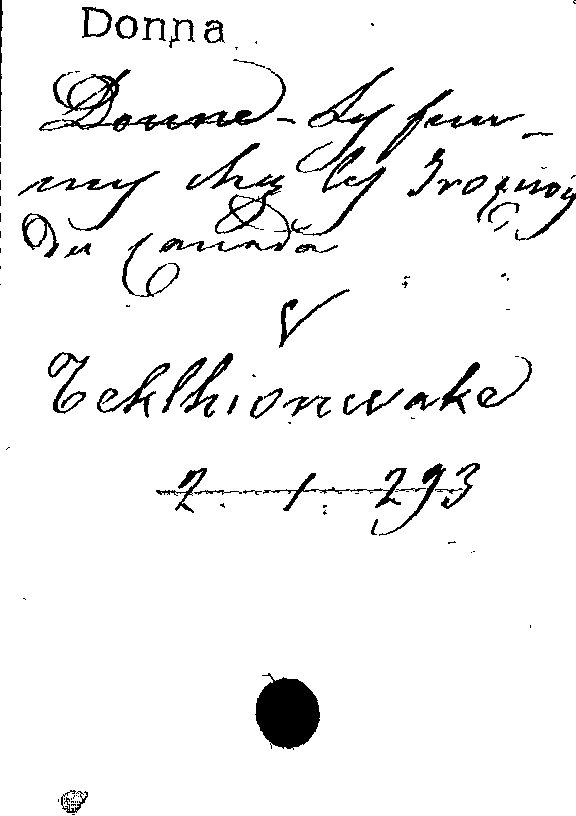 Donna
Donne - Les fem-
mes chez les Iroquois
du Canada
V
Teklhionwake
2. 1. 293